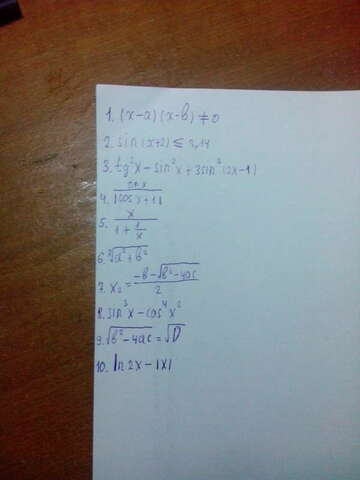 1. (x-a)(x-b)≠0
2. sin(x+2) ≤ 3,14
3. tg²x - sin²x + 3sin²(2x-1)
4. sin x / |cos x + 1|
5. x / (1 + 1/x)
6. ∛(a²+b²)
7. x₂ = (-b - √(b²-4ac)) / 2
8. sin³x - cos⁴x²
9. √(b²-4ac) = √D
10. ln 2x - |x|